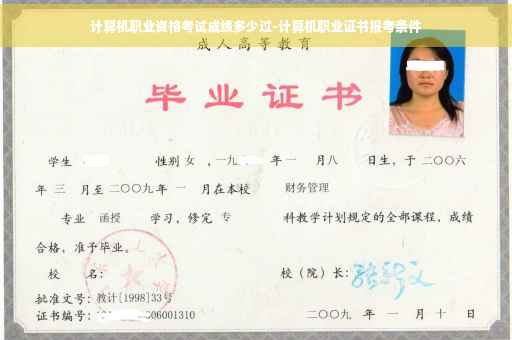 计算机职业资格考试成绩多少过-计算机职业证书报考条件
成人高等教育
毕业证书
学生 性别 女 ，一九 年一 月八 日生，于二〇〇六
年 三 月至二〇〇九年 一 月在本校 财务管理
专业 函授 学习，修完 专 科教学计划规定的全部课程，成绩
合格，准予毕业。
校 名： 校（院）长：
批准文号：教计[1998]33号
证书编号： 006001310 二〇〇九 年 一 月 十 日